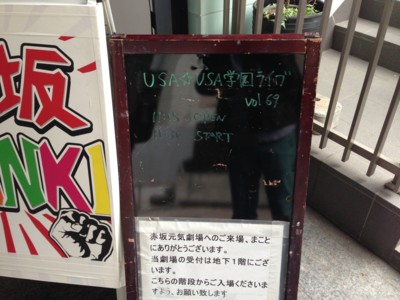 坂
NKI
USA☆USA学園ライブ
vol 69
OPEN
START
赤坂元気劇場へのご来場、まこと
にありがとうございます。
当劇場の受付は地下1階にござ
います。
こちらの階段からご入場くださいま
すよう、お願い致します